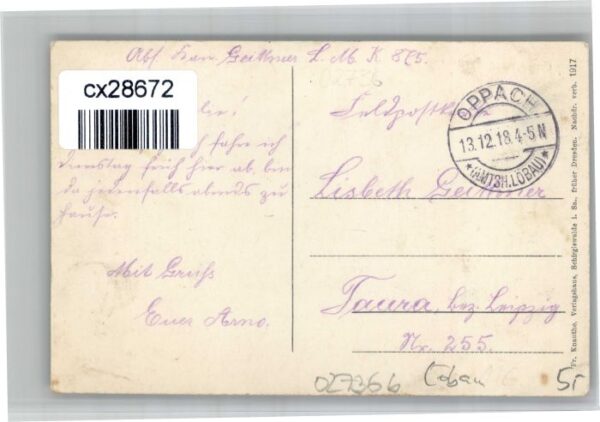 Abs. Kan. Geithner L. M. K. 875.
02736
cx28672
fahre ich
Dienstag früh hier ab, bin
da jedenfalls abends zu
Hause.
Mit Gruß
Euer Arno.
Feldpostkarte
OPPACH
13.12.18.4-5N
*(AMTSH.LÖBAU)*
Lisbeth Geithner
Taura bez. Leipzig
Nr. 255.
027366 Löbau 5,-
Fr. Knauthe, Verlagshaus, Schirgiswalde i. Sa., früher Dresden. Nachdr. verb. 1917